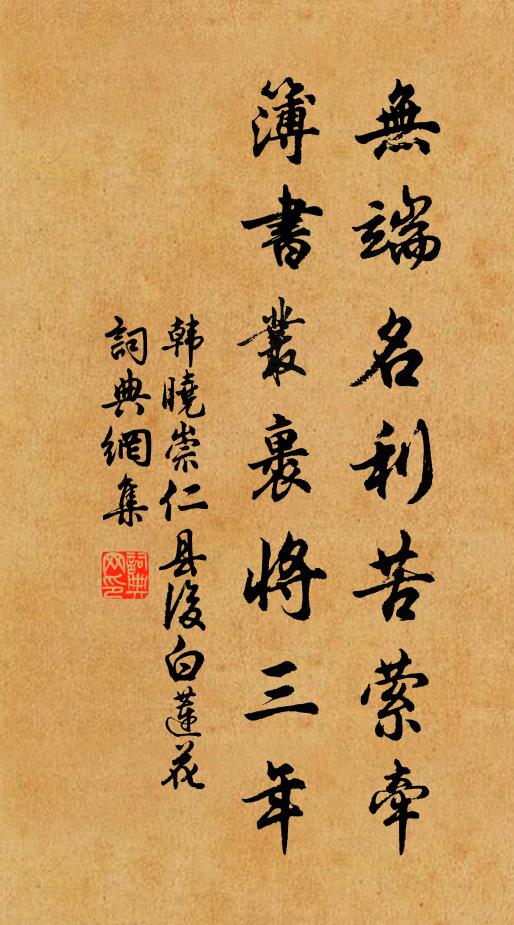 無端名利苦萦牽
簿書叢裹將三年
韩曉崇仁县後白蓮花
詞典網集
詞典
网印